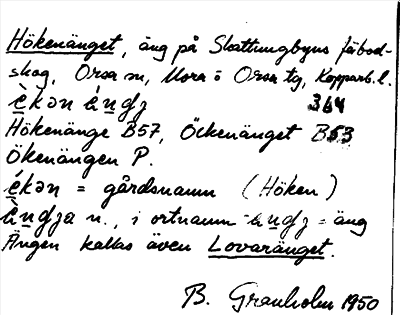 Hökenänget, äng på Skattungbyns fäbod-
skog, Orsa sn, Mora o Orsa tg, Kopparb. l.
èkən éŋgʒ 364
Hökenänge B57, Öckenänget B53
Ökenängen P.
ékən = gårdsnamn (Höken)
èŋgʒa n., i ortnamn -èŋgʒ = äng
Ängen kallas även Lovaränget.
B. Granholm 1950